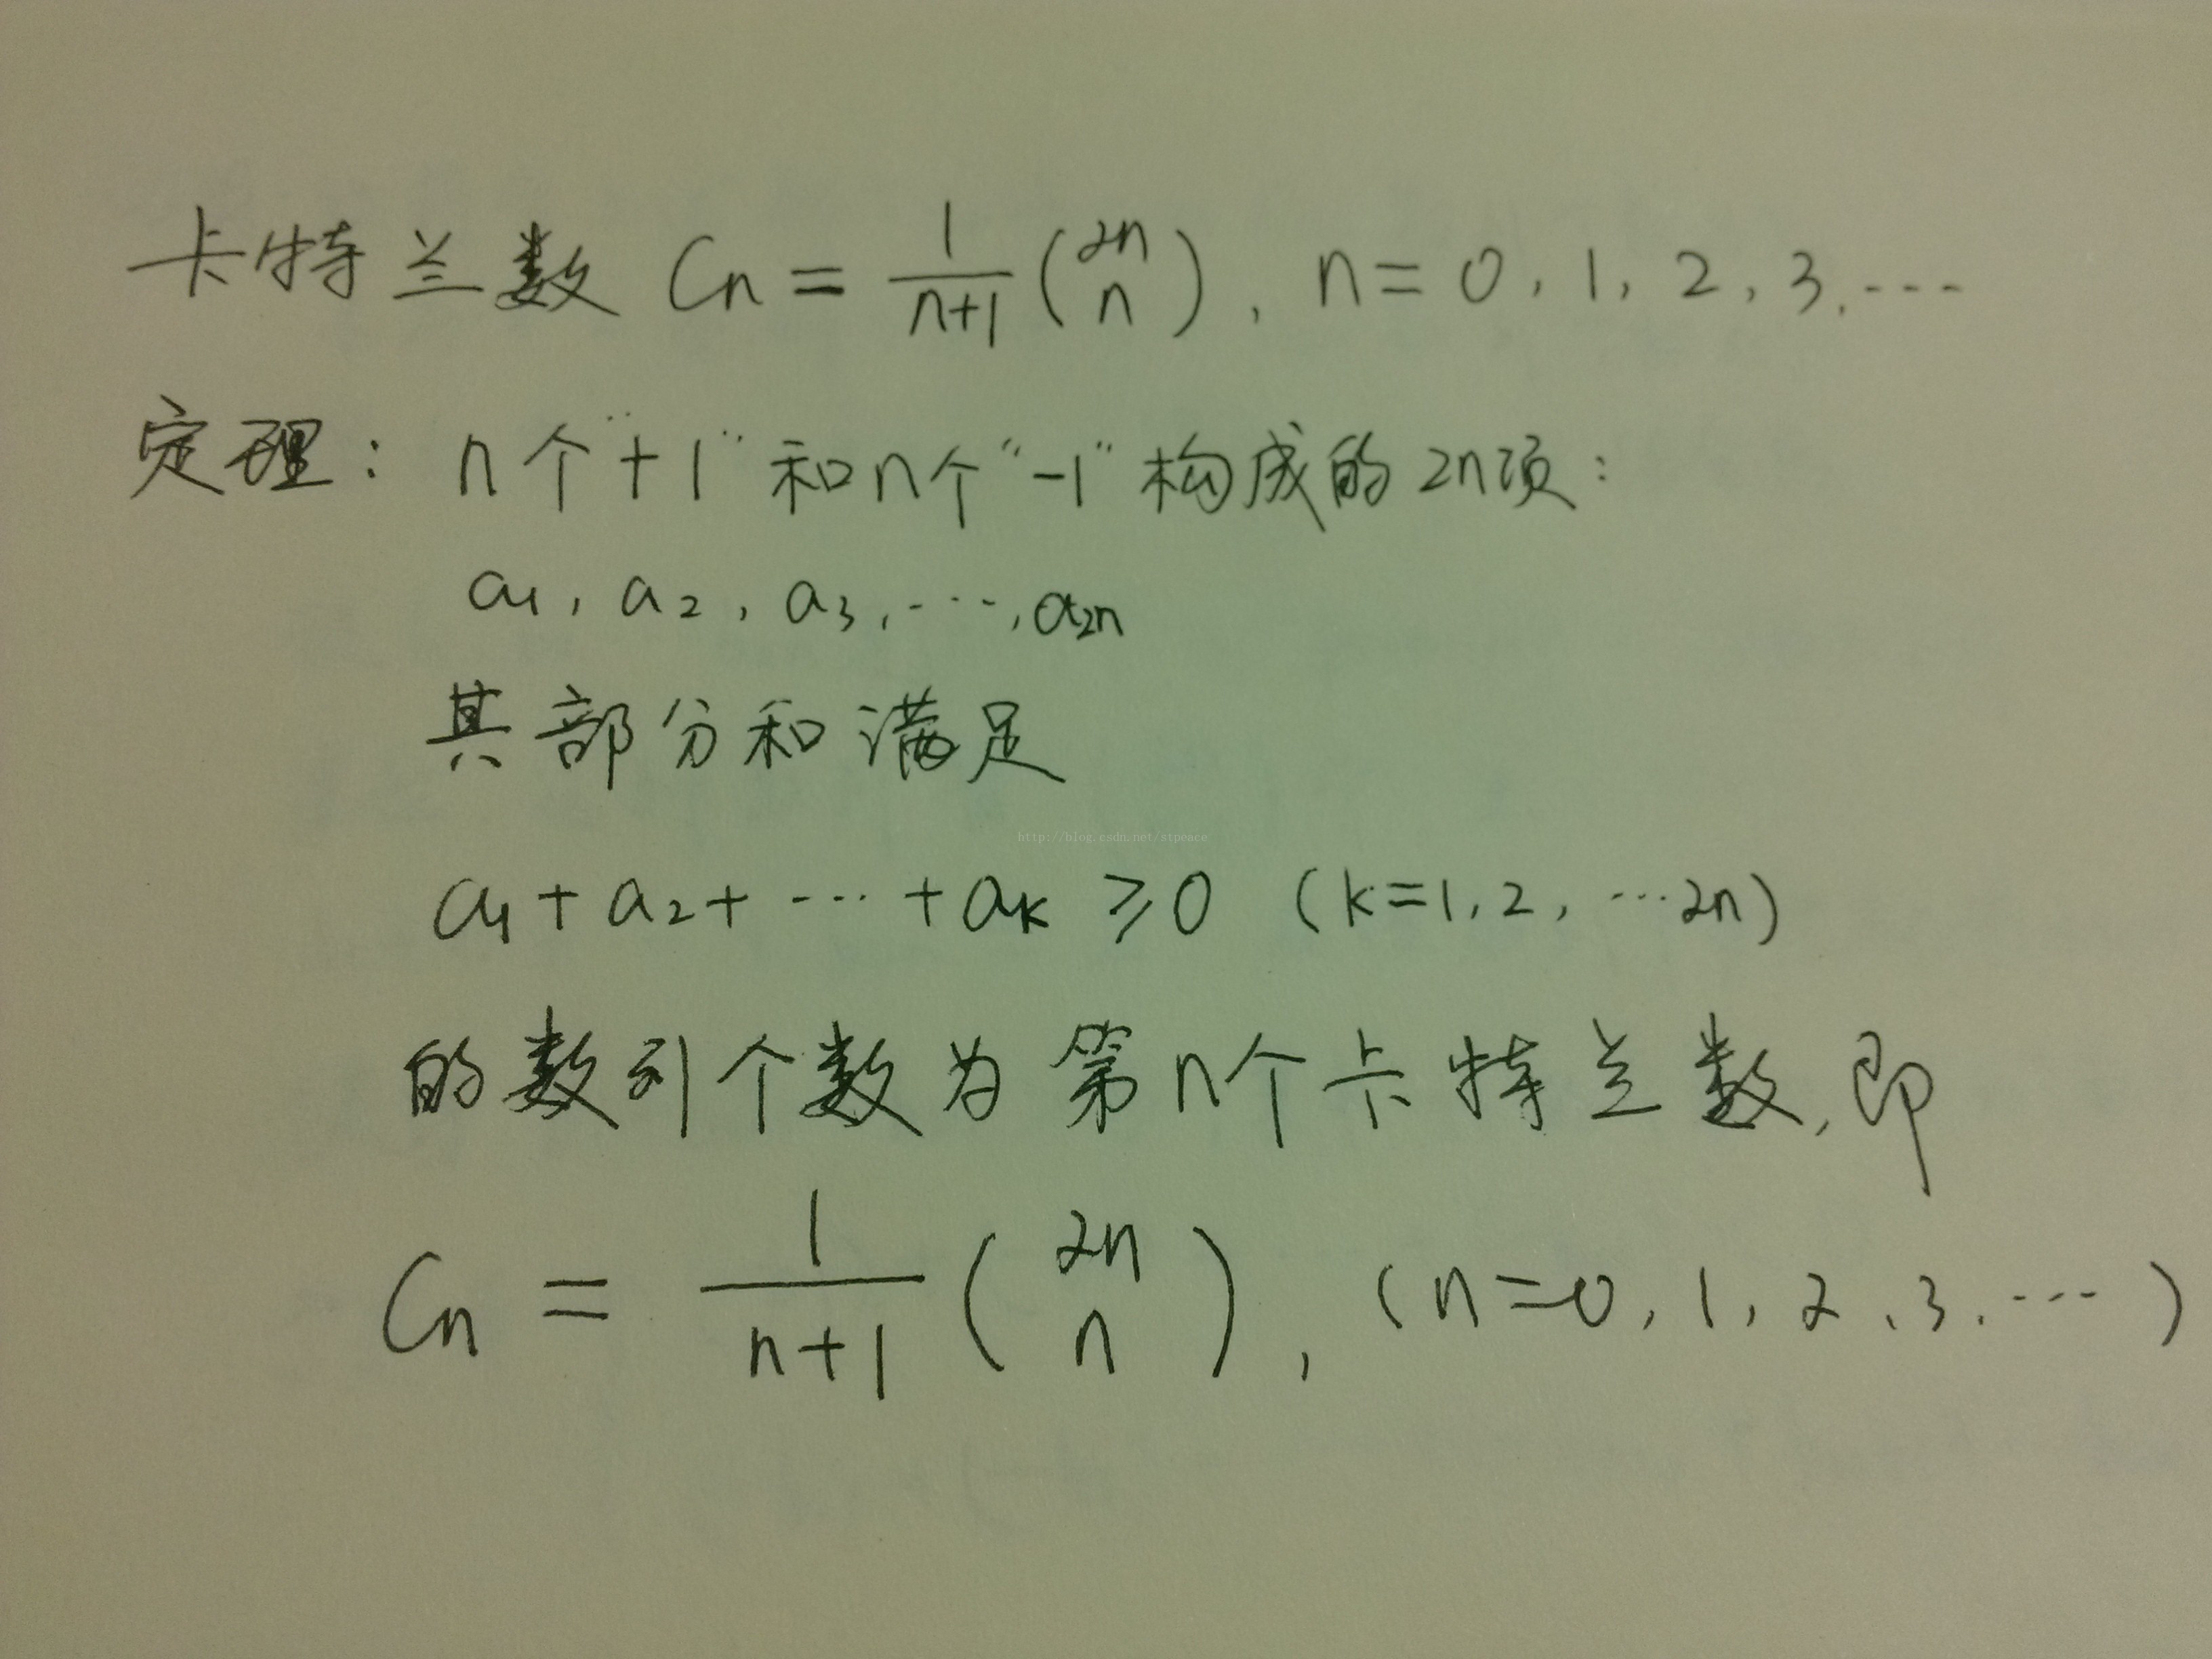 卡特兰数 Cn = 1/(n+1) (2n n), n = 0, 1, 2, 3, ...
定理: n个"+1"和n个"-1"构成的2n项:
a1, a2, a3, ..., a2n
其部分和满足
http://blog.csdn.net/stpeace
a1 + a2 + ... + ak ≥ 0 (k=1, 2, ... 2n)
的数列个数为第n个卡特兰数, 即
Cn = 1/(n+1) (2n n), (n=0, 1, 2, 3, ...)